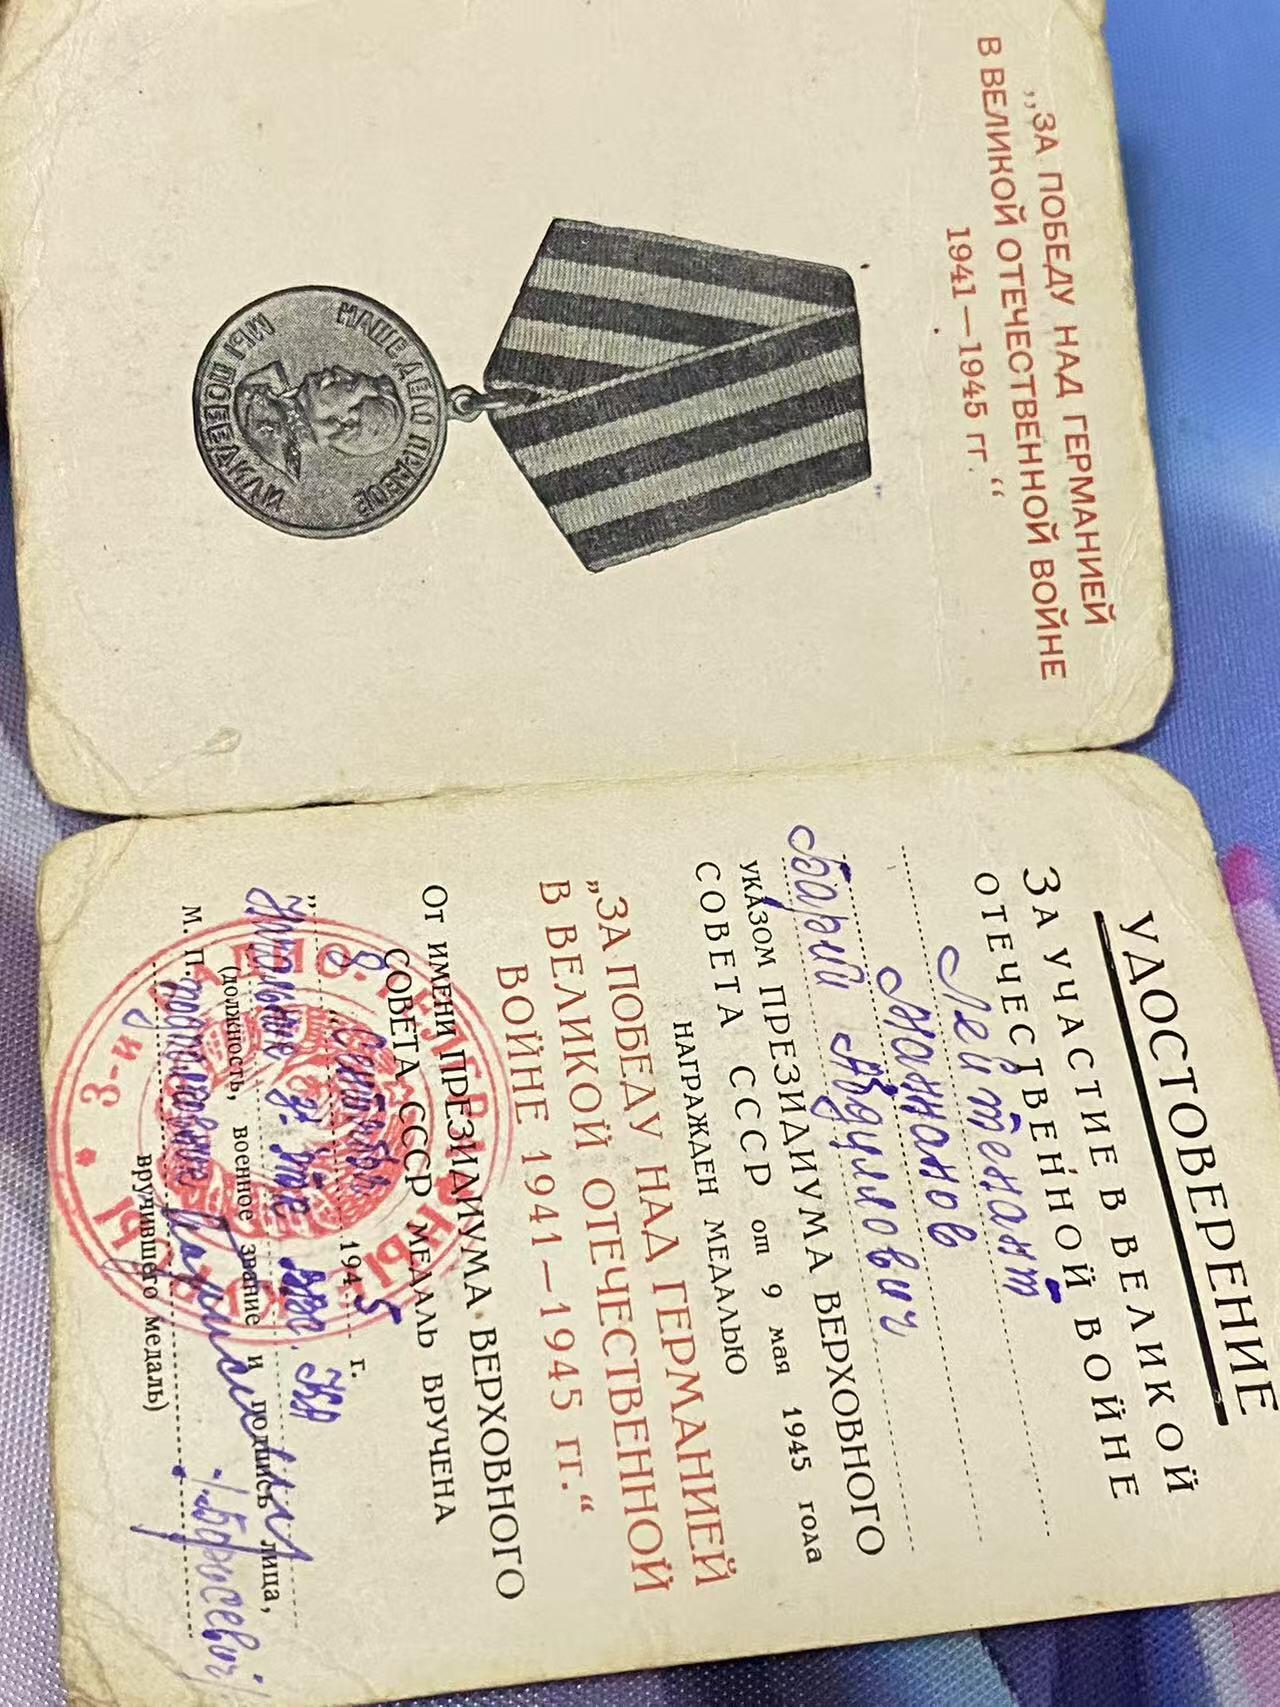 „ЗА ПОБЕДУ НАД ГЕРМАНИЕЙ
В ВЕЛИКОЙ ОТЕЧЕСТВЕННОЙ ВОЙНЕ
1941—1945 гг.“
НАШЕ ДЕЛО ПРАВОЕ
МЫ ПОБЕДИЛИ
УДОСТОВЕРЕНИЕ
ЗА УЧАСТИЕ В ВЕЛИКОЙ
ОТЕЧЕСТВЕННОЙ ВОЙНЕ
Лейтенант
Маннанов
Барий Абдулович
УКАЗОМ ПРЕЗИДИУМА ВЕРХОВНОГО
СОВЕТА СССР от 9 мая 1945 года
НАГРАЖДЕН МЕДАЛЬЮ
„ЗА ПОБЕДУ НАД ГЕРМАНИЕЙ
В ВЕЛИКОЙ ОТЕЧЕСТВЕННОЙ
ВОЙНЕ 1941—1945 гг.“
От ИМЕНИ ПРЕЗИДИУМА ВЕРХОВНОГО
СОВЕТА СССР МЕДАЛЬ ВРУЧЕНА
„8“ Сентября 1945 г.
(должность, военное звание и подпись лица,
М. П.
вручившего медаль)